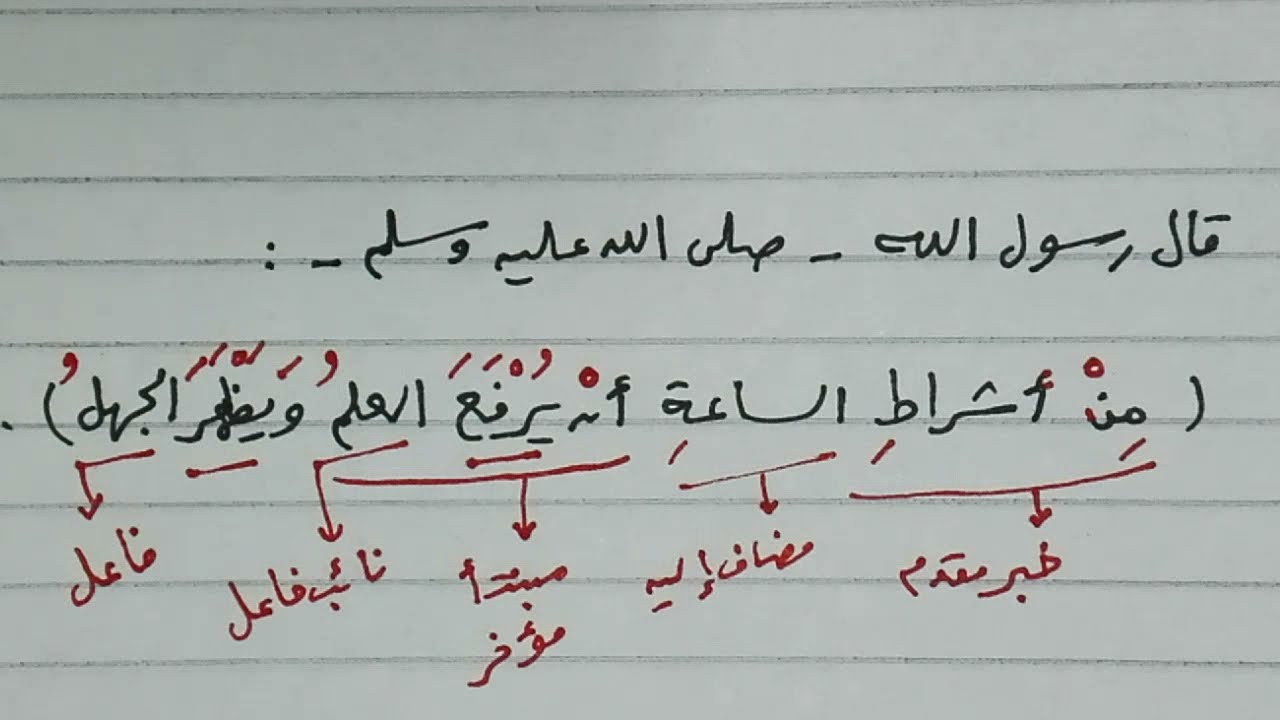 قال رسول الله - صلى الله عليه وسلم - :
(مِنْ أشراطِ الساعةِ أنْ يُرْفَعَ العلمُ وَيَظْهَرَ الجهلُ).
خبر مقدم
مضاف إليه
مبتدأ
مؤخر
نائب فاعل
فاعل